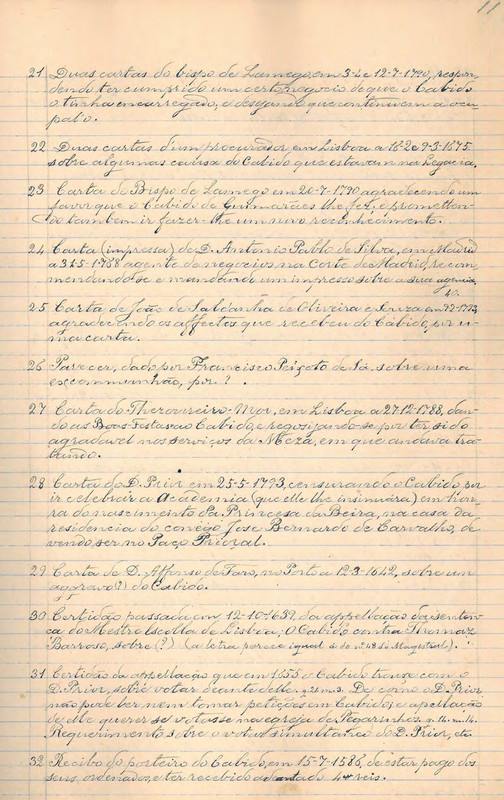 11
21 Duas cartas do bispo de Lamego, em 3-4 e 12-7-1790, respon-
dendo ter cumprido um certo negocio de que o Cabido
o tinha encarregado, e desejando que continuem a occu-
pal-o.
22 Duas cartas d'um procurador em Lisboa a 16-2 e 9-3-1675
sobre algumas causas do Cabido que estavam na Legacia.
23 Carta do Bispo de Lamego em 20-7-1790 agradecendo um
favor que o Cabido de Guimarães lhe fez, e prometten-
do tambem ir fazer-lhe um novo reconhecimento.
24 Carta (impressa) de D. Antonio Pablo de Silva, em Madrid
a 31-5-1788 agente de negocios na Corte de Madrid, recom-
mendando-se e mandando um impresso sobre a sua agencia,
25 Carta de João de Saldanha de Oliveira e Souza em
agradecendo os affectos que recebeu do Cabido, por u-
ma carta.
26 Parecer, dado por Francisco Peixoto de Sá, sobre uma
excommunhão, por ? .
27 Carta do Thezoureiro-Mor, em Lisboa a 27-12-1788, dan-
do as Boas-Festas ao Cabido, e regosijando-se por ter sido
agradavel nos serviços da Meza, em que andava tra-
tando.
28 Carta do D. Prior em 25-5-1793, censurando o Cabido por
ir celebrar a Academia (que elle lhe insinuára) em hon-
ra do nascimento da Princesa da Beira, na casa da
residencia do conego José Bernardo de Carvalho, de-
vendo ser no Paço Prioral.
29 Carta de D. Affonso de Faro, no Porto a 12-3-1642, sobre um
aggravo (?) do Cabido.
30 Certidão passada em 12-10-1639, da appellação da senten-
ça do Mestre Escolla de Lisboa, O Cabido contra Thomaz
Barroso, sobre (?) (a letra parece igual á do nº 48 do Magistral).
31 Certidão da appellação que em 1655 o Cabido trouxe com o
D. Prior, sobre votar deante delle. De como o D. Prior,
não pode ver nem tomar petições em Cabido, e apellação
de elle querer se votasse na egreja de
Requerimento sobre o voto simultaneo do D. Prior, etc.
32 Recibo do porteiro do Cabido, em 15-7-1586, de estar pago dos
seus ordenados, e ter recebido adeantado 4# reis.